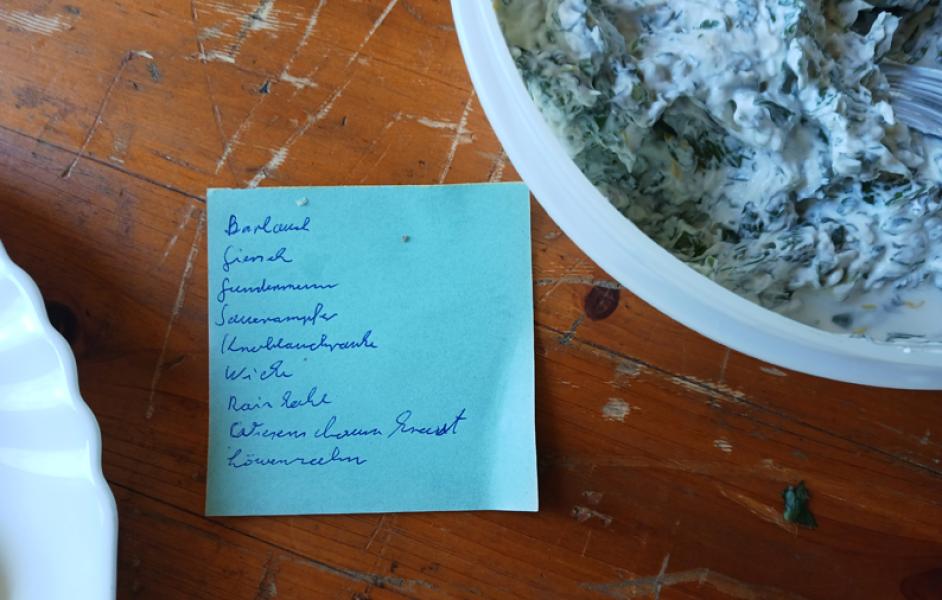 Bärlauch
Giersch
Gundermann
Sauerampfer
Knoblauchranke
Wicke
Rainkohl
Wiesenschaumkraut
Löwenzahn